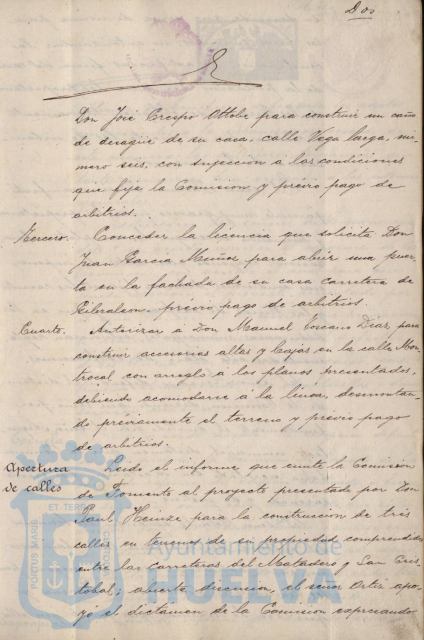 Dos
Don José Crespo Ottobe para construir un caño
de desagüe de su casa, calle Vega larga, nú-
mero seis, con sujeccion a las condiciones
que fija la Comision y prévio pago de
arbitrios.
Tercero. Conceder la licencia que solicita Don
Juan Garcia Muñoz para abrir una puer-
ta en la fachada de su casa carretera de
Gibraleon, prévio pago de arbitrios.
Cuarto. Autorizar á Don Manuel Toscano Diaz, para
construir accesorias altas y bajas en la calle Mon-
trocal con arreglo a los planos presentados,
debiendo acomodarse a la línea, desmontan-
do préviamente el terreno y previo pago
de arbitrios.
Apertura de calles
Leido el informe que emite la Comision
de Fomento al proyecto presentado por Don
Paul Heinze para la construccion de tres
calles en terrenos de su propiedad comprendidos
entre las carreteras del Matadero y San Cris-
tobal; abierta discusion, el señor Ortiz apo-
yó el dictamen de la Comision expresando
PORTUS MARIS
ET TERRÆ
Ayuntamiento de
HUELVA